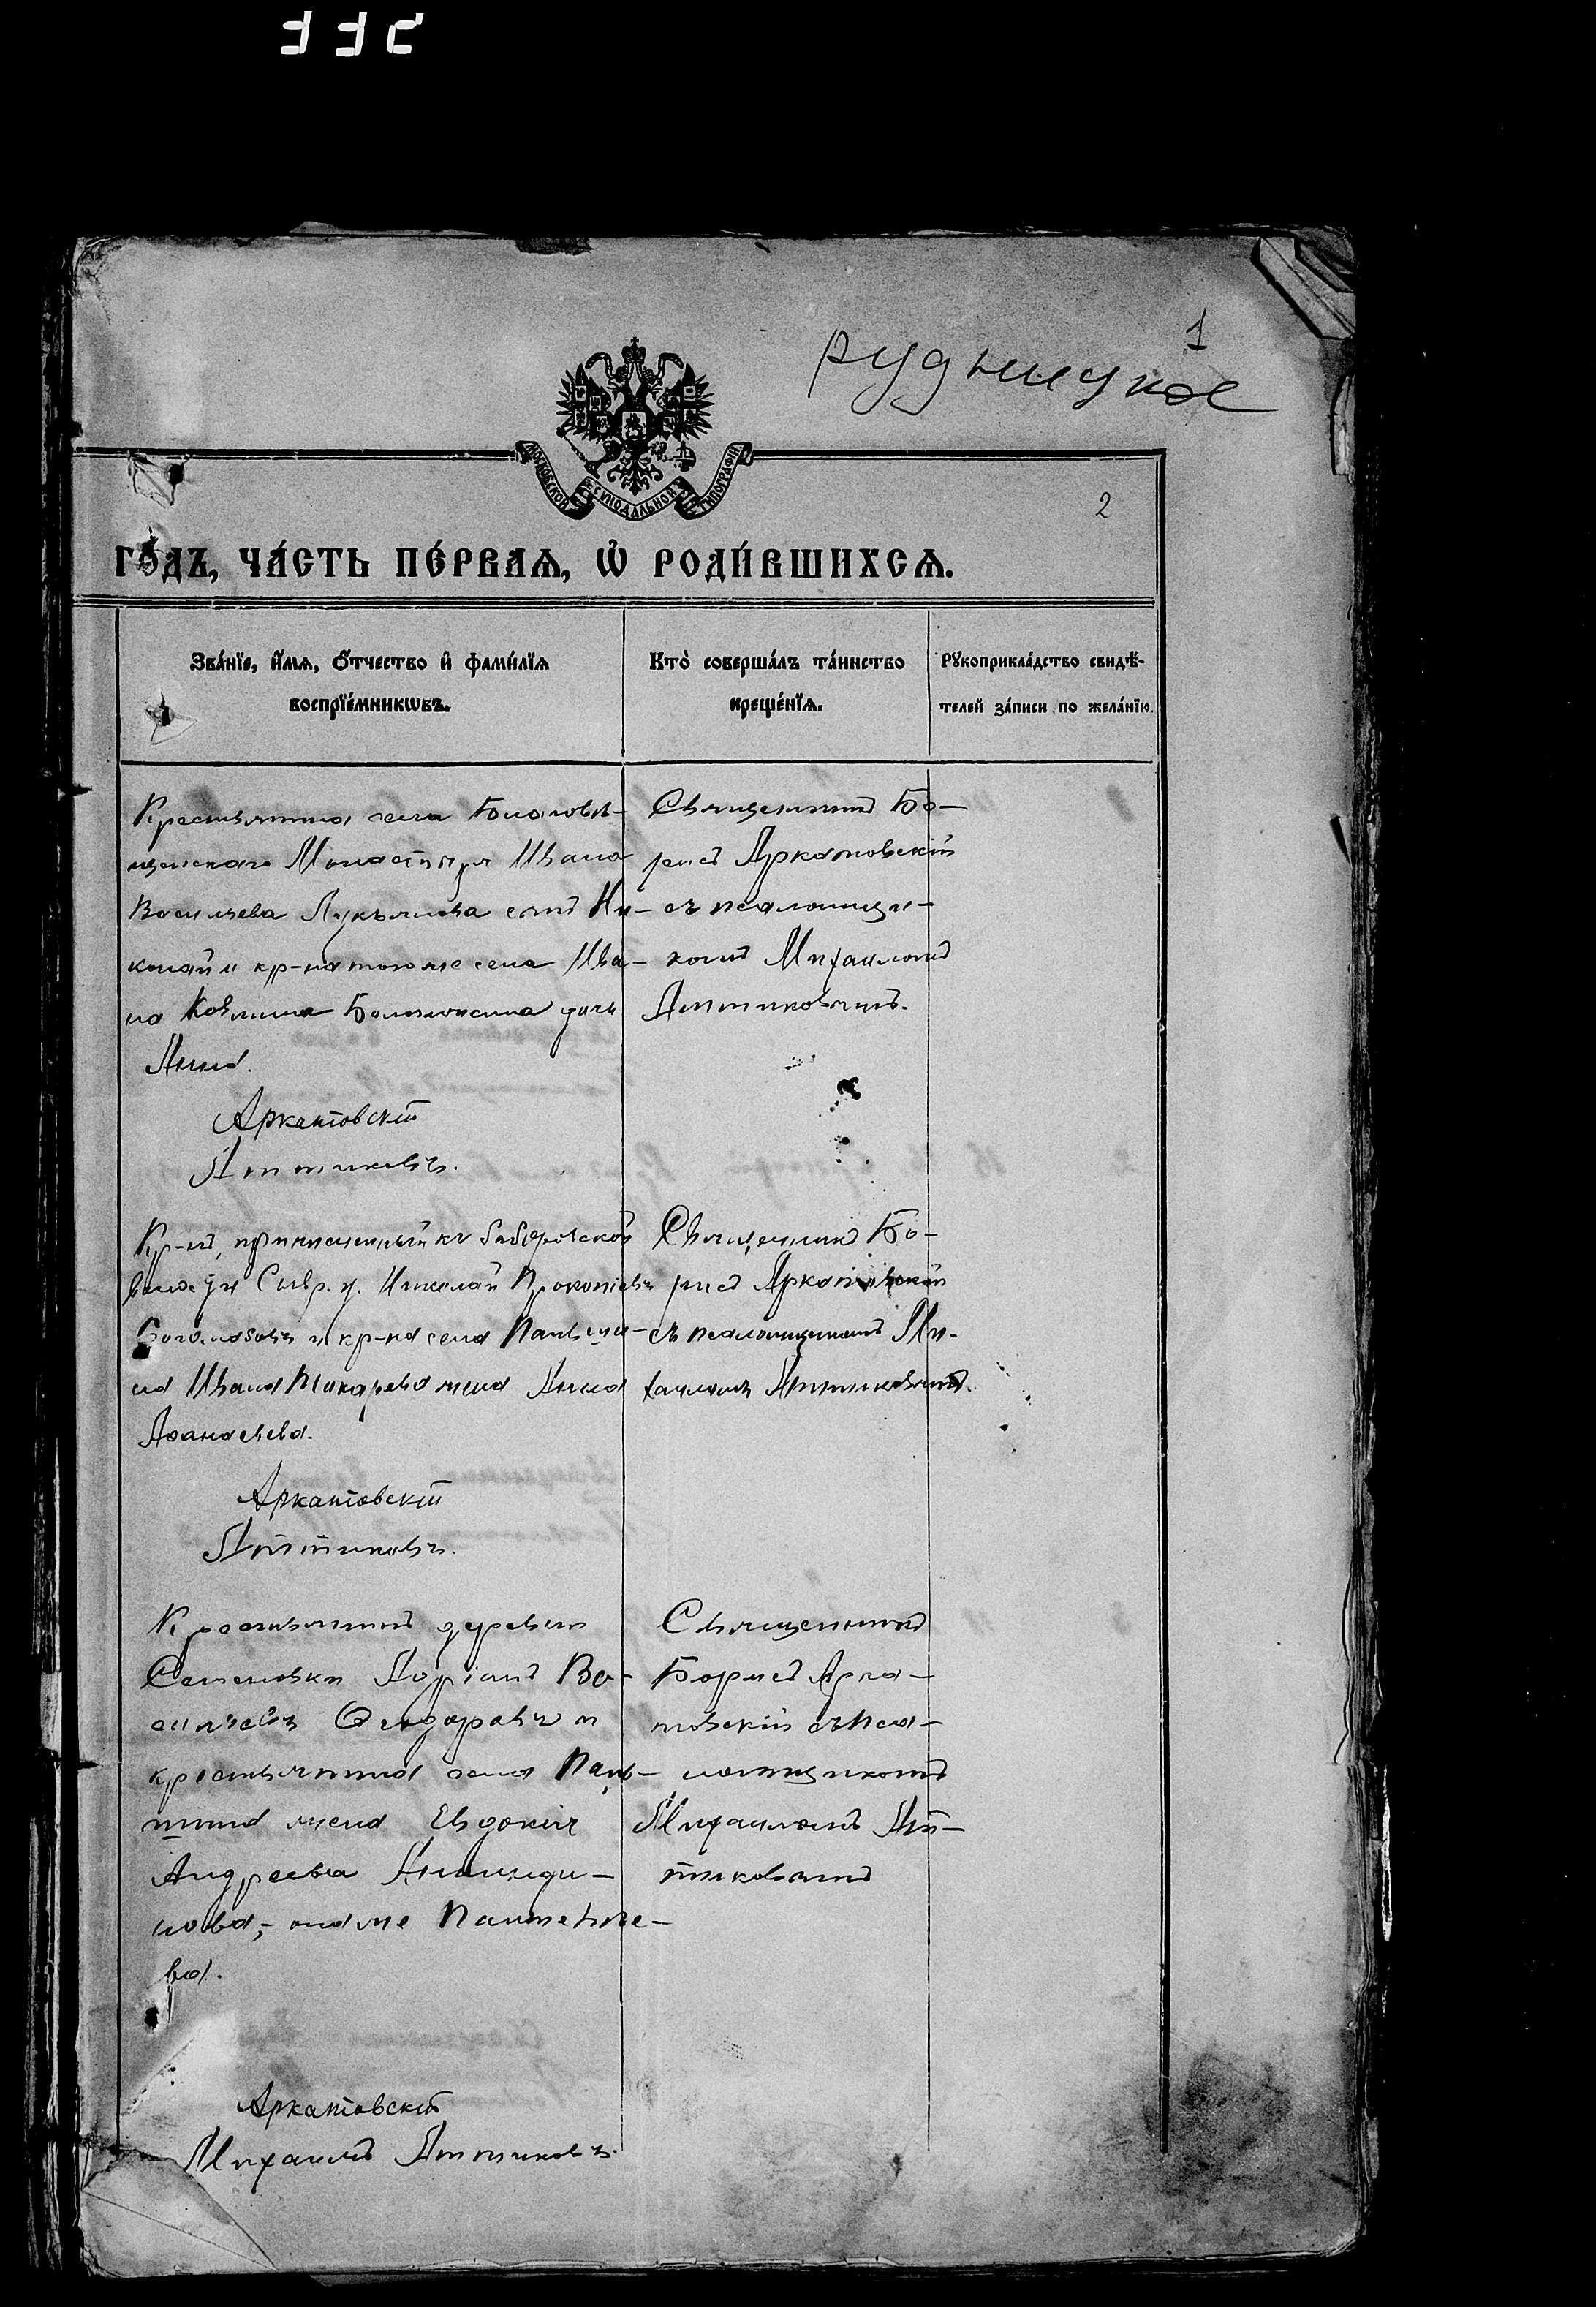 1
рудницкое
МОСКОВСКОЙ СУНОДАЛЬНОЙ ТИПОГРАФІИ
2
ГО́ДЪ, ЧА́СТЬ ПЕ́РВАѦ, Ѡ҆ РОДИ́ВШИХСѦ.
Зва́нїе, и҆́мѧ, ѻ҆́тчество и҆ фами́лїѧ
воспрїе́мникѡвъ.
Кто̀ соверша́лъ та́инство
креще́нїѧ.
Рꙋкоприкла́дство свидѣ́-
телей за́писи по жела́нїю.
Крестьянина села Благовѣ-
щенскаго Монастыря Ивана
Васильева Лукьянова сынъ Ни-
колай и кр-на того же села Ива-
на дочь
Анна.
Аркатовскій
Аттиковъ.
Священникъ Бо-
рисъ Аркатовскій
съ псаломщи-
комъ Михаиломъ
Аттиковымъ.
Кр-нъ, приписанный къ
Николай Прокопіевъ
и кр-на села
на Ивана Макарева жена Анна
Аѳанасьева.
Аркатовскій
Аттиковъ.
Священникъ Бо-
рисъ Аркатовскій
съ псаломщикомъ Ми-
хаиломъ Аттиковымъ.
Крестьянинъ деревни
Семеновки Ва-
сильевъ Ѳедоровъ и
крестьянина села
жена Евдокія
Андреева
нова, она же
ва.
Аркатовскій
Михаилъ Аттиковъ.
Священникъ
Борисъ Арка-
товскій съ пса-
ломщикомъ
Михаиломъ Ат-
тиковымъ